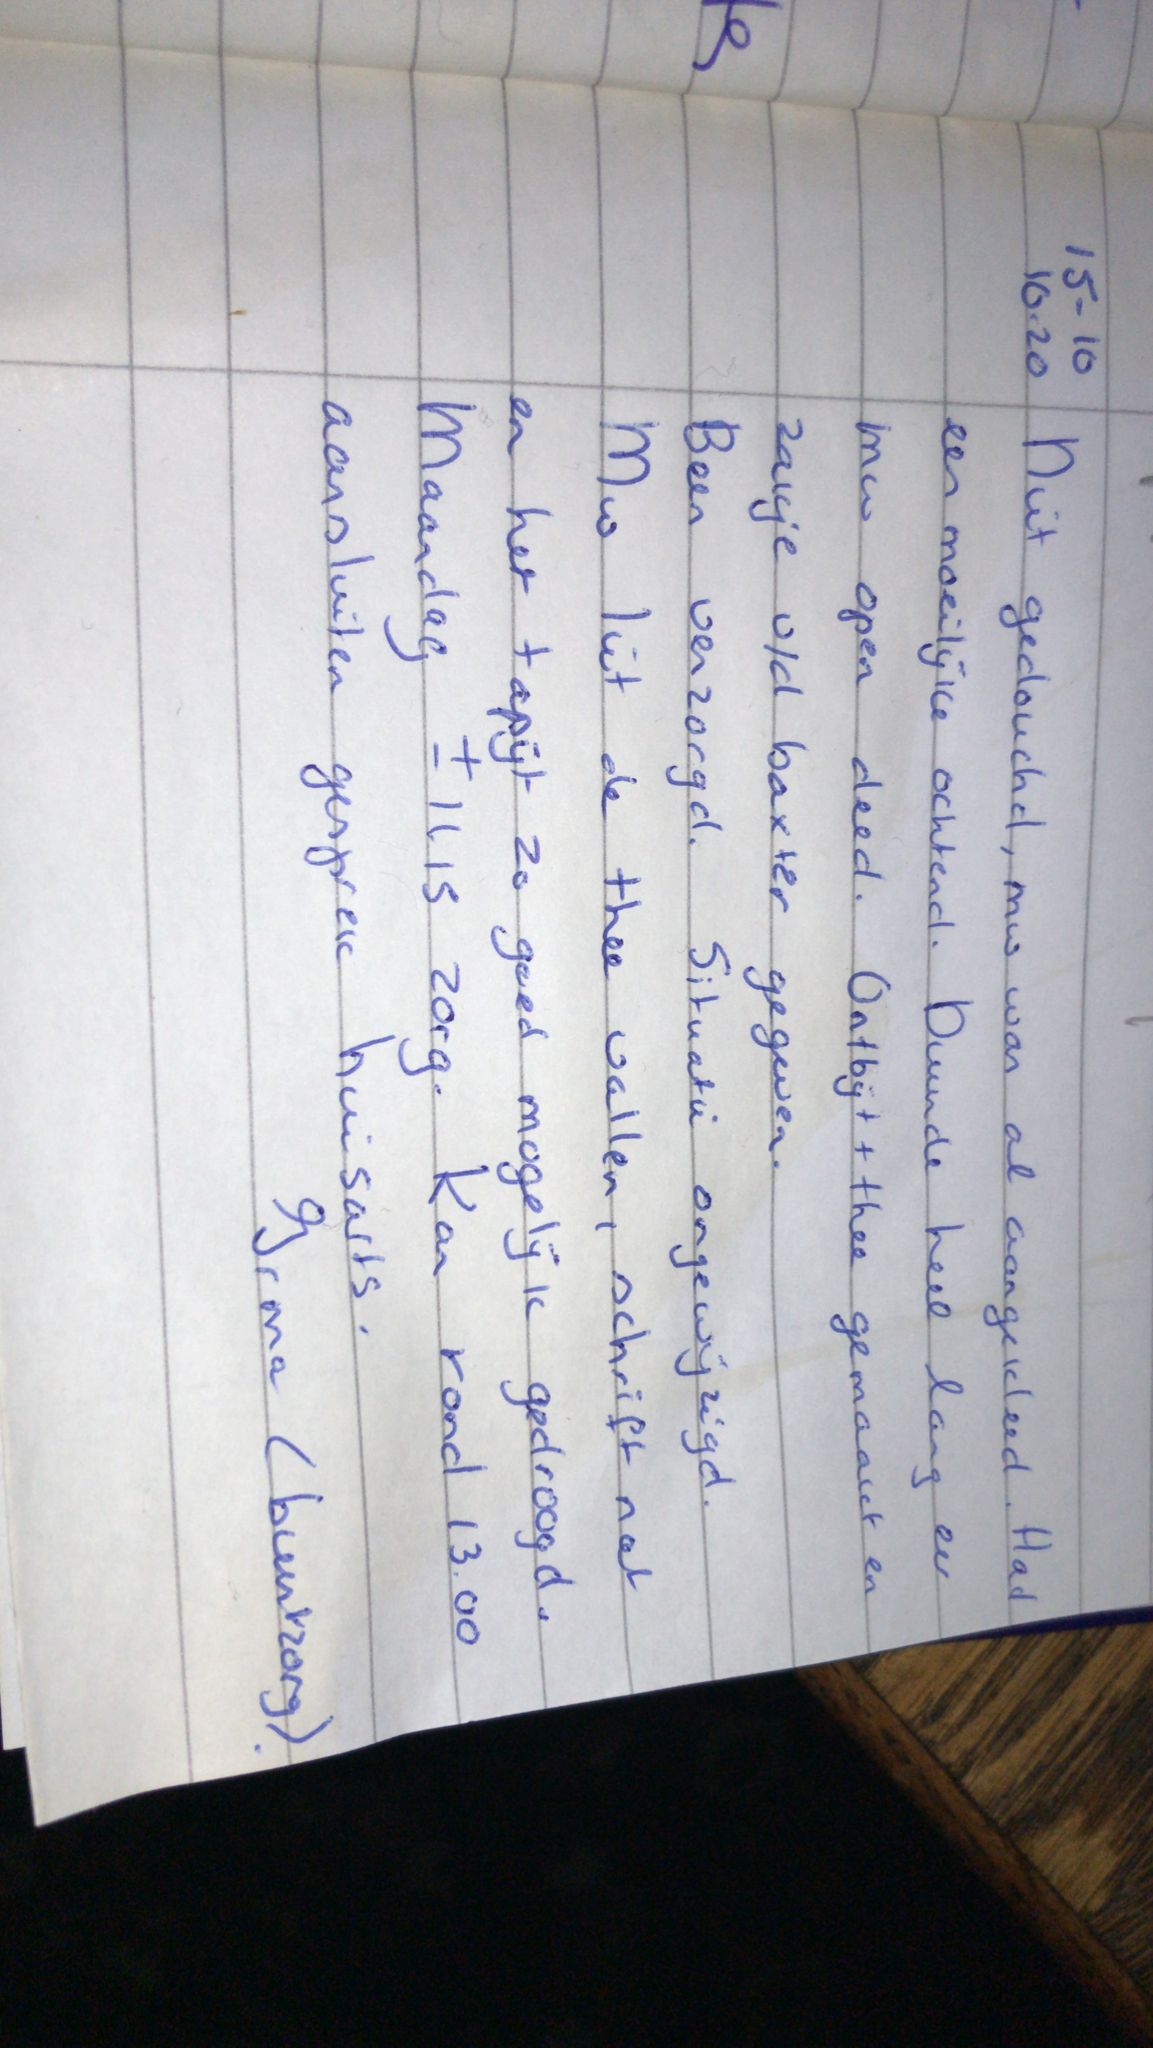 15-10
10.20 Niet gedouchd, mw was al aangekleed. Had
een moeilijke ochtend. Duurde heel lang eer
mw open deed. Ontbijt + thee gemaakt en
zakje v/d baxter gegeven.
Been verzorgd. Situatie ongewijzigd.
Mw liet de thee vallen, schrift nat
en het tapijt zo goed mogelijk gedroogd.
Maandag ± 11.15 zorg. Kan rond 13.00
aansluiten gesprek huisarts.
Irma (buurtzorg).